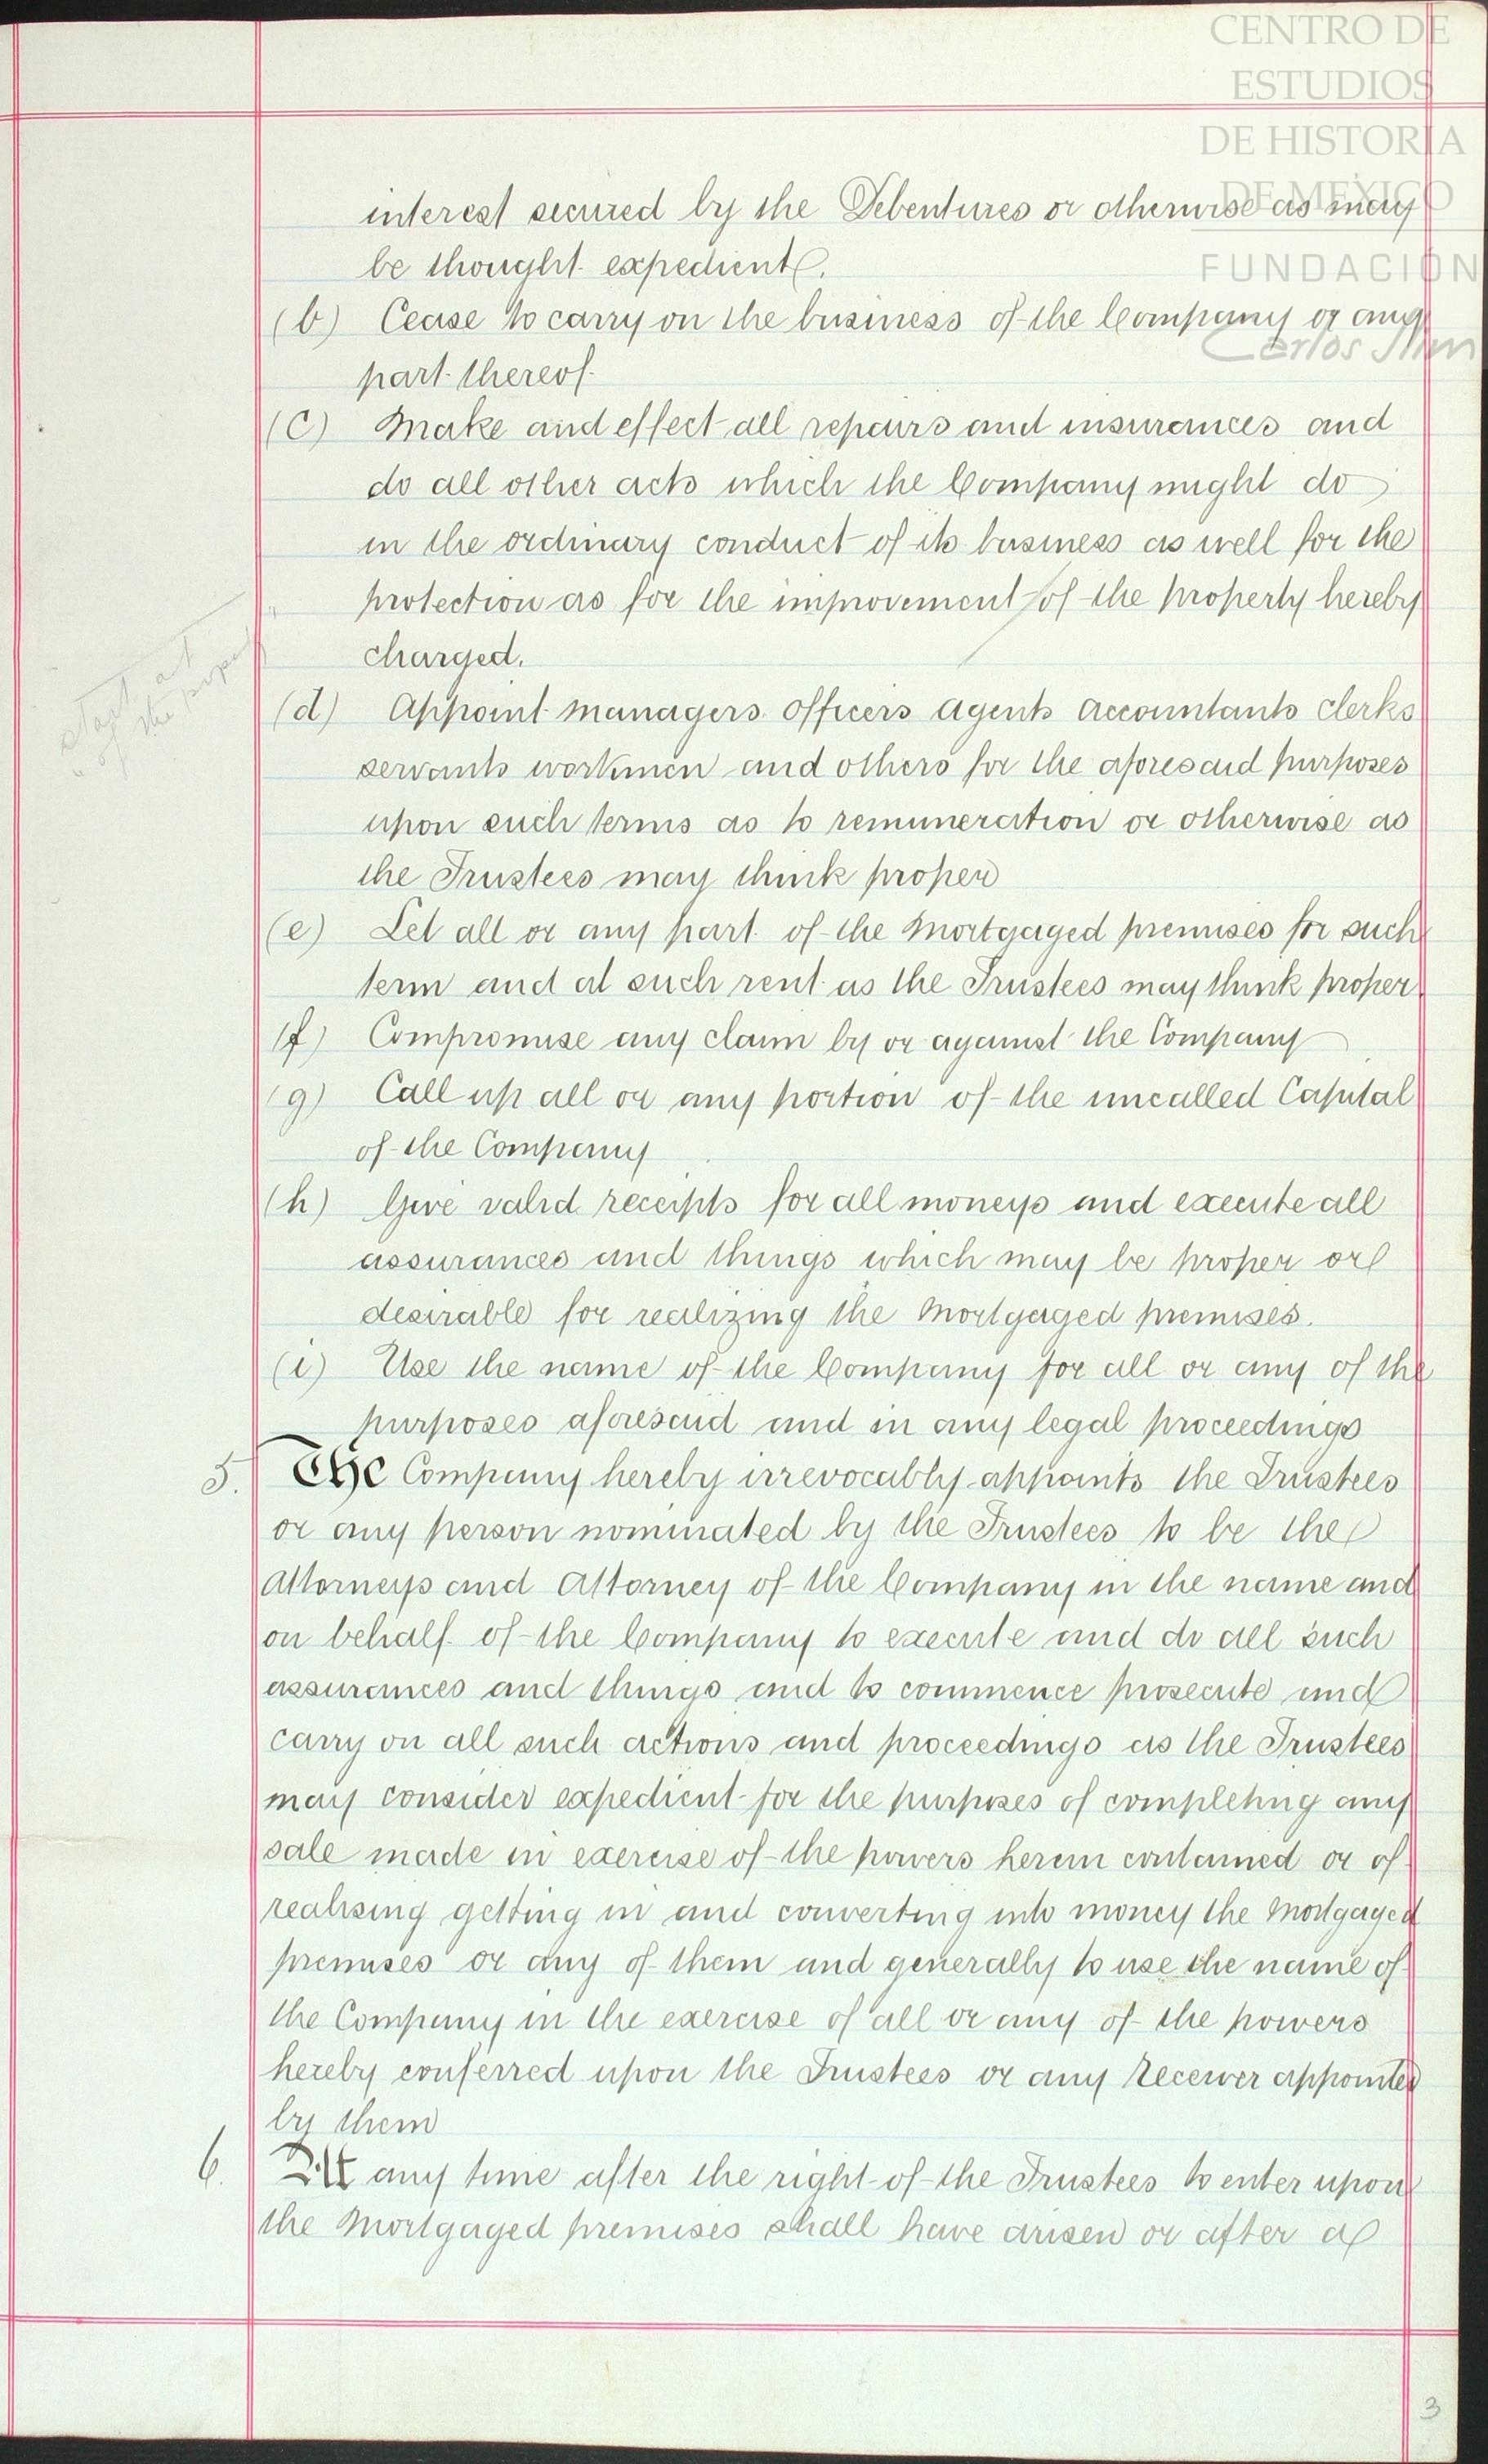 CENTRO DE
ESTUDIOS
DE HISTORIA
DE MÉXICO
FUNDACIÓN
Carlos Slim
interest secured by the Debentures or otherwise as may
be thought expedient.
(b) Cease to carry on the business of the Company or any
part thereof.
(C) Make and effect all repairs and insurances and
do all other acts which the Company might do
in the ordinary conduct of its business as well for the
protection as for the improvement of the property hereby
charged.
start at
"of the proper
(d) Appoint managers officers agents accountants clerks
servants workmen and others for the aforesaid purposes
upon such terms as to remuneration or otherwise as
the Trustees may think proper
(e) Let all or any part of the Mortgaged premises for such
term and at such rent as the Trustees may think proper.
(f) Compromise any claim by or against the Company
(g) Call up all or any portion of the uncalled Capital
of the Company
(h) Give valid receipts for all moneys and execute all
assurances and things which may be proper or
desirable for realizing the Mortgaged premises.
(i) Use the name of the Company for all or any of the
purposes aforesaid and in any legal proceedings
5. The Company hereby irrevocably appoints the Trustees
or any person nominated by the Trustees to be the
Attorneys and Attorney of the Company in the name and
on behalf of the Company to execute and do all such
assurances and things and to commence prosecute and
carry on all such actions and proceedings as the Trustees
may consider expedient for the purposes of completing any
sale made in exercise of the powers herein contained or of
realising getting in and converting into money the Mortgaged
premises or any of them and generally to use the name of
the Company in the exercise of all or any of the powers
hereby conferred upon the Trustees or any Receiver appointed
by them
6. At any time after the right of the Trustees to enter upon
the Mortgaged premises shall have arisen or after a
3